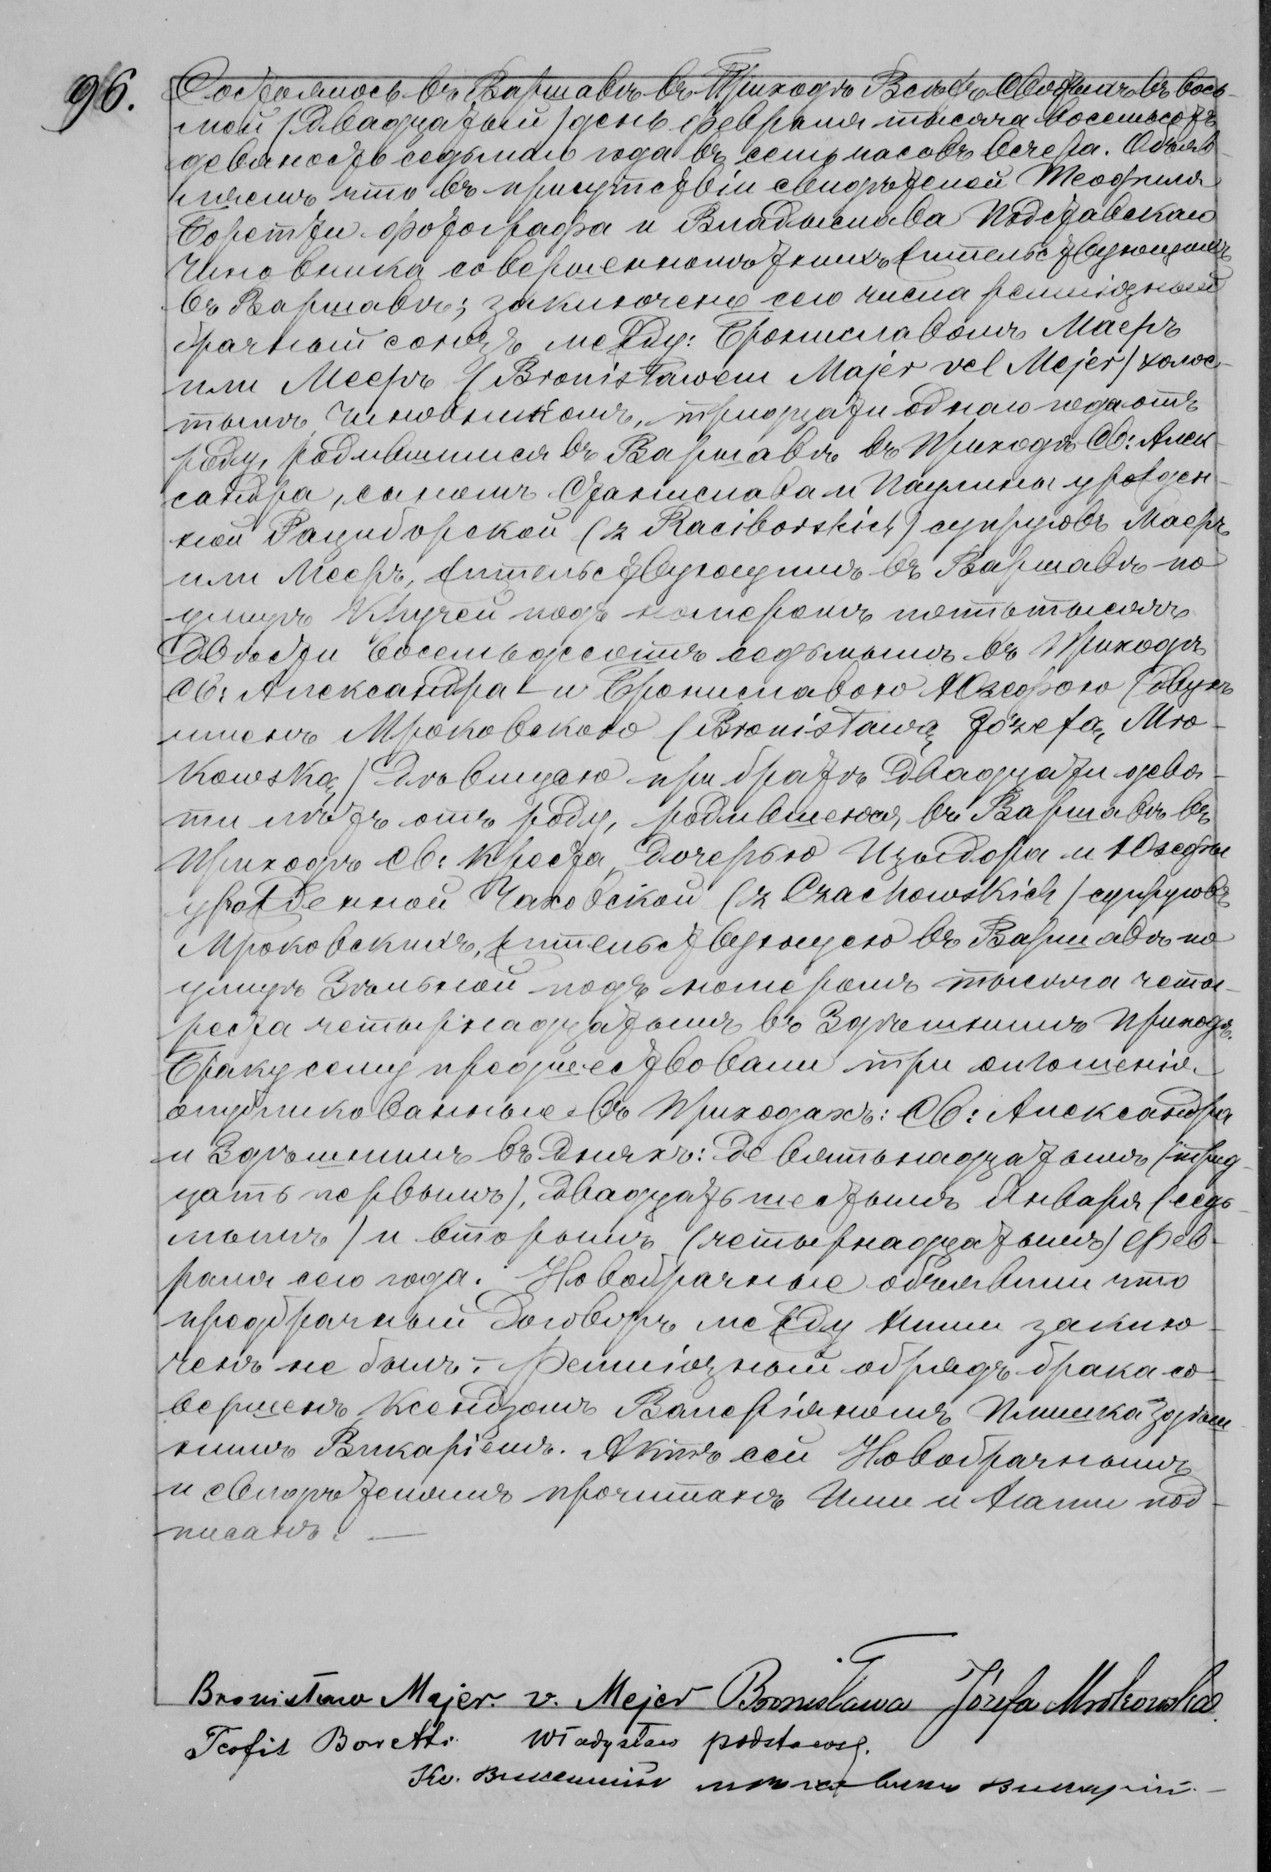 96.
Состоялось въ Варшавѣ въ Приходѣ Всѣхъ Святыхъ въ вось-
мой /двадцатый/ день февраля тысяча восемьсотъ
девяносто седьмаго года въ семь часовъ вечера. Объяв-
ляемъ что въ присутствіи свидѣтелей Теофиля
Боретти фотографа и Владыслава Подставскаго
чиновника совершеннолѣтнихъ жительствующихъ
въ Варшавѣ; заключенъ сего числа религіозный
брачный союзъ между: Брониславомъ Маеръ
или Мееръ /Bronisławem Majer vel Mejer/ холос-
тымъ, чиновникомъ, тридцати одного года отъ
роду, родившимся въ Варшавѣ въ Приходѣ Св: Алек-
сандра, сыномъ Станислава и Паулины урожден-
ной Рациборской (z Raciborskich) супруговъ Маеръ
или Мееръ, жительствующимъ въ Варшавѣ по
улицѣ Кручей подъ номеромъ пятьтысячъ
двѣсти восемьдесятъ седьмымъ въ Приходѣ
Св: Александра – и Брониславою Юзефою (двухъ
именъ Мроковскою (Bronisławą Józefą Mro-
kowską) дѣвицею при братѣ двадцати девя-
ти лѣтъ отъ роду, родившеюся въ Варшавѣ въ
Приходѣ Св: Креста, дочерью Изыдора и Юзефы
урожденной Чаховской (z Czachowskich) супруговъ
Мроковскихъ, жительствующею въ Варшавѣ по
улицѣ Зѣльной подъ номеромъ тысяча четы-
реста четырнадцатымъ въ Здѣшнимъ Приходѣ.
Браку сему предшествовали три оглашенія
опубликованные въ Приходахъ: Св: Александра
и Здѣшнимъ въ дняхъ: девятьнадцатымъ (трид-
цать первымъ), двадцать шестымъ Января (седь-
мымъ) и вторымъ (четырнадцатымъ) Фев-
раля сего года. Новобрачные объявили что
предбрачный договоръ между ними заклю-
ченъ не былъ. – Религіозный обрядъ брака со-
вершенъ Ксендзомъ Валеріяномъ Плишка здѣш-
нимъ Викаріемъ. Актъ сей Новобрачнымъ
и свидѣтелямъ прочитанъ Ими и Нами под-
писанъ. —
Bronisław Majer v. Mejer Bronisława Józefa Mrokowska
Teofil Boretti Władysław Podstawsk.
Кс.